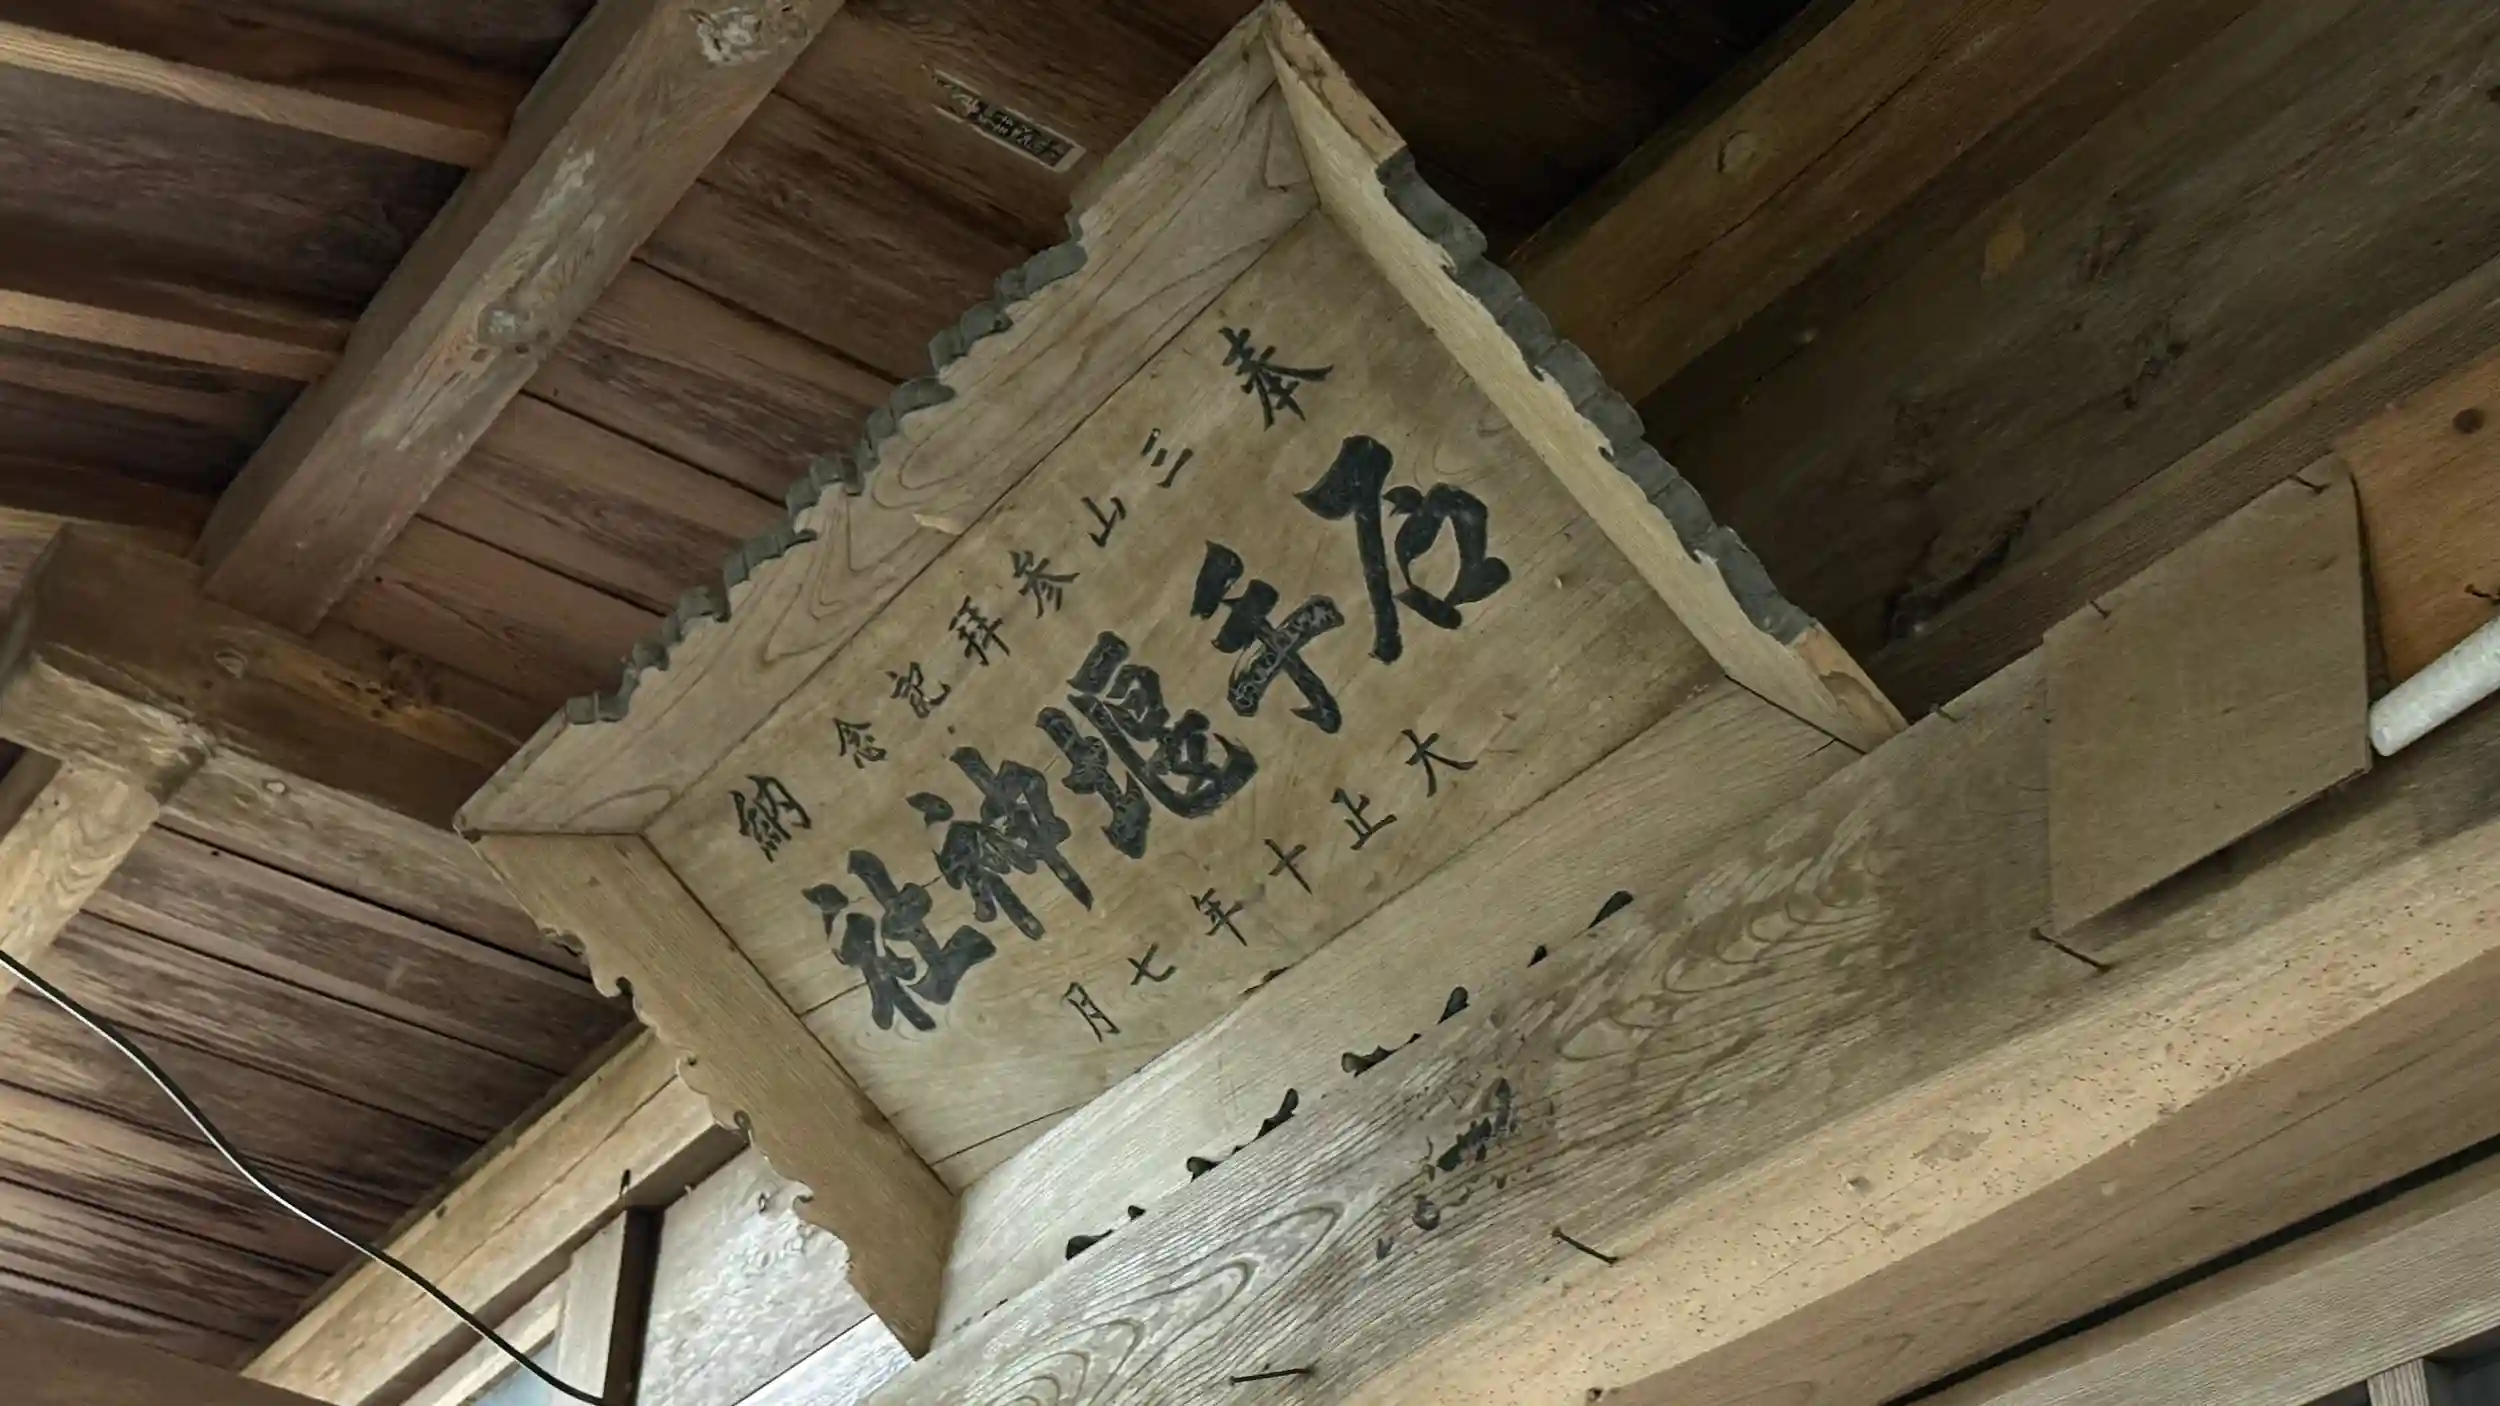 奉 三山参拜記念 納
石手堰神社
大正十年七月